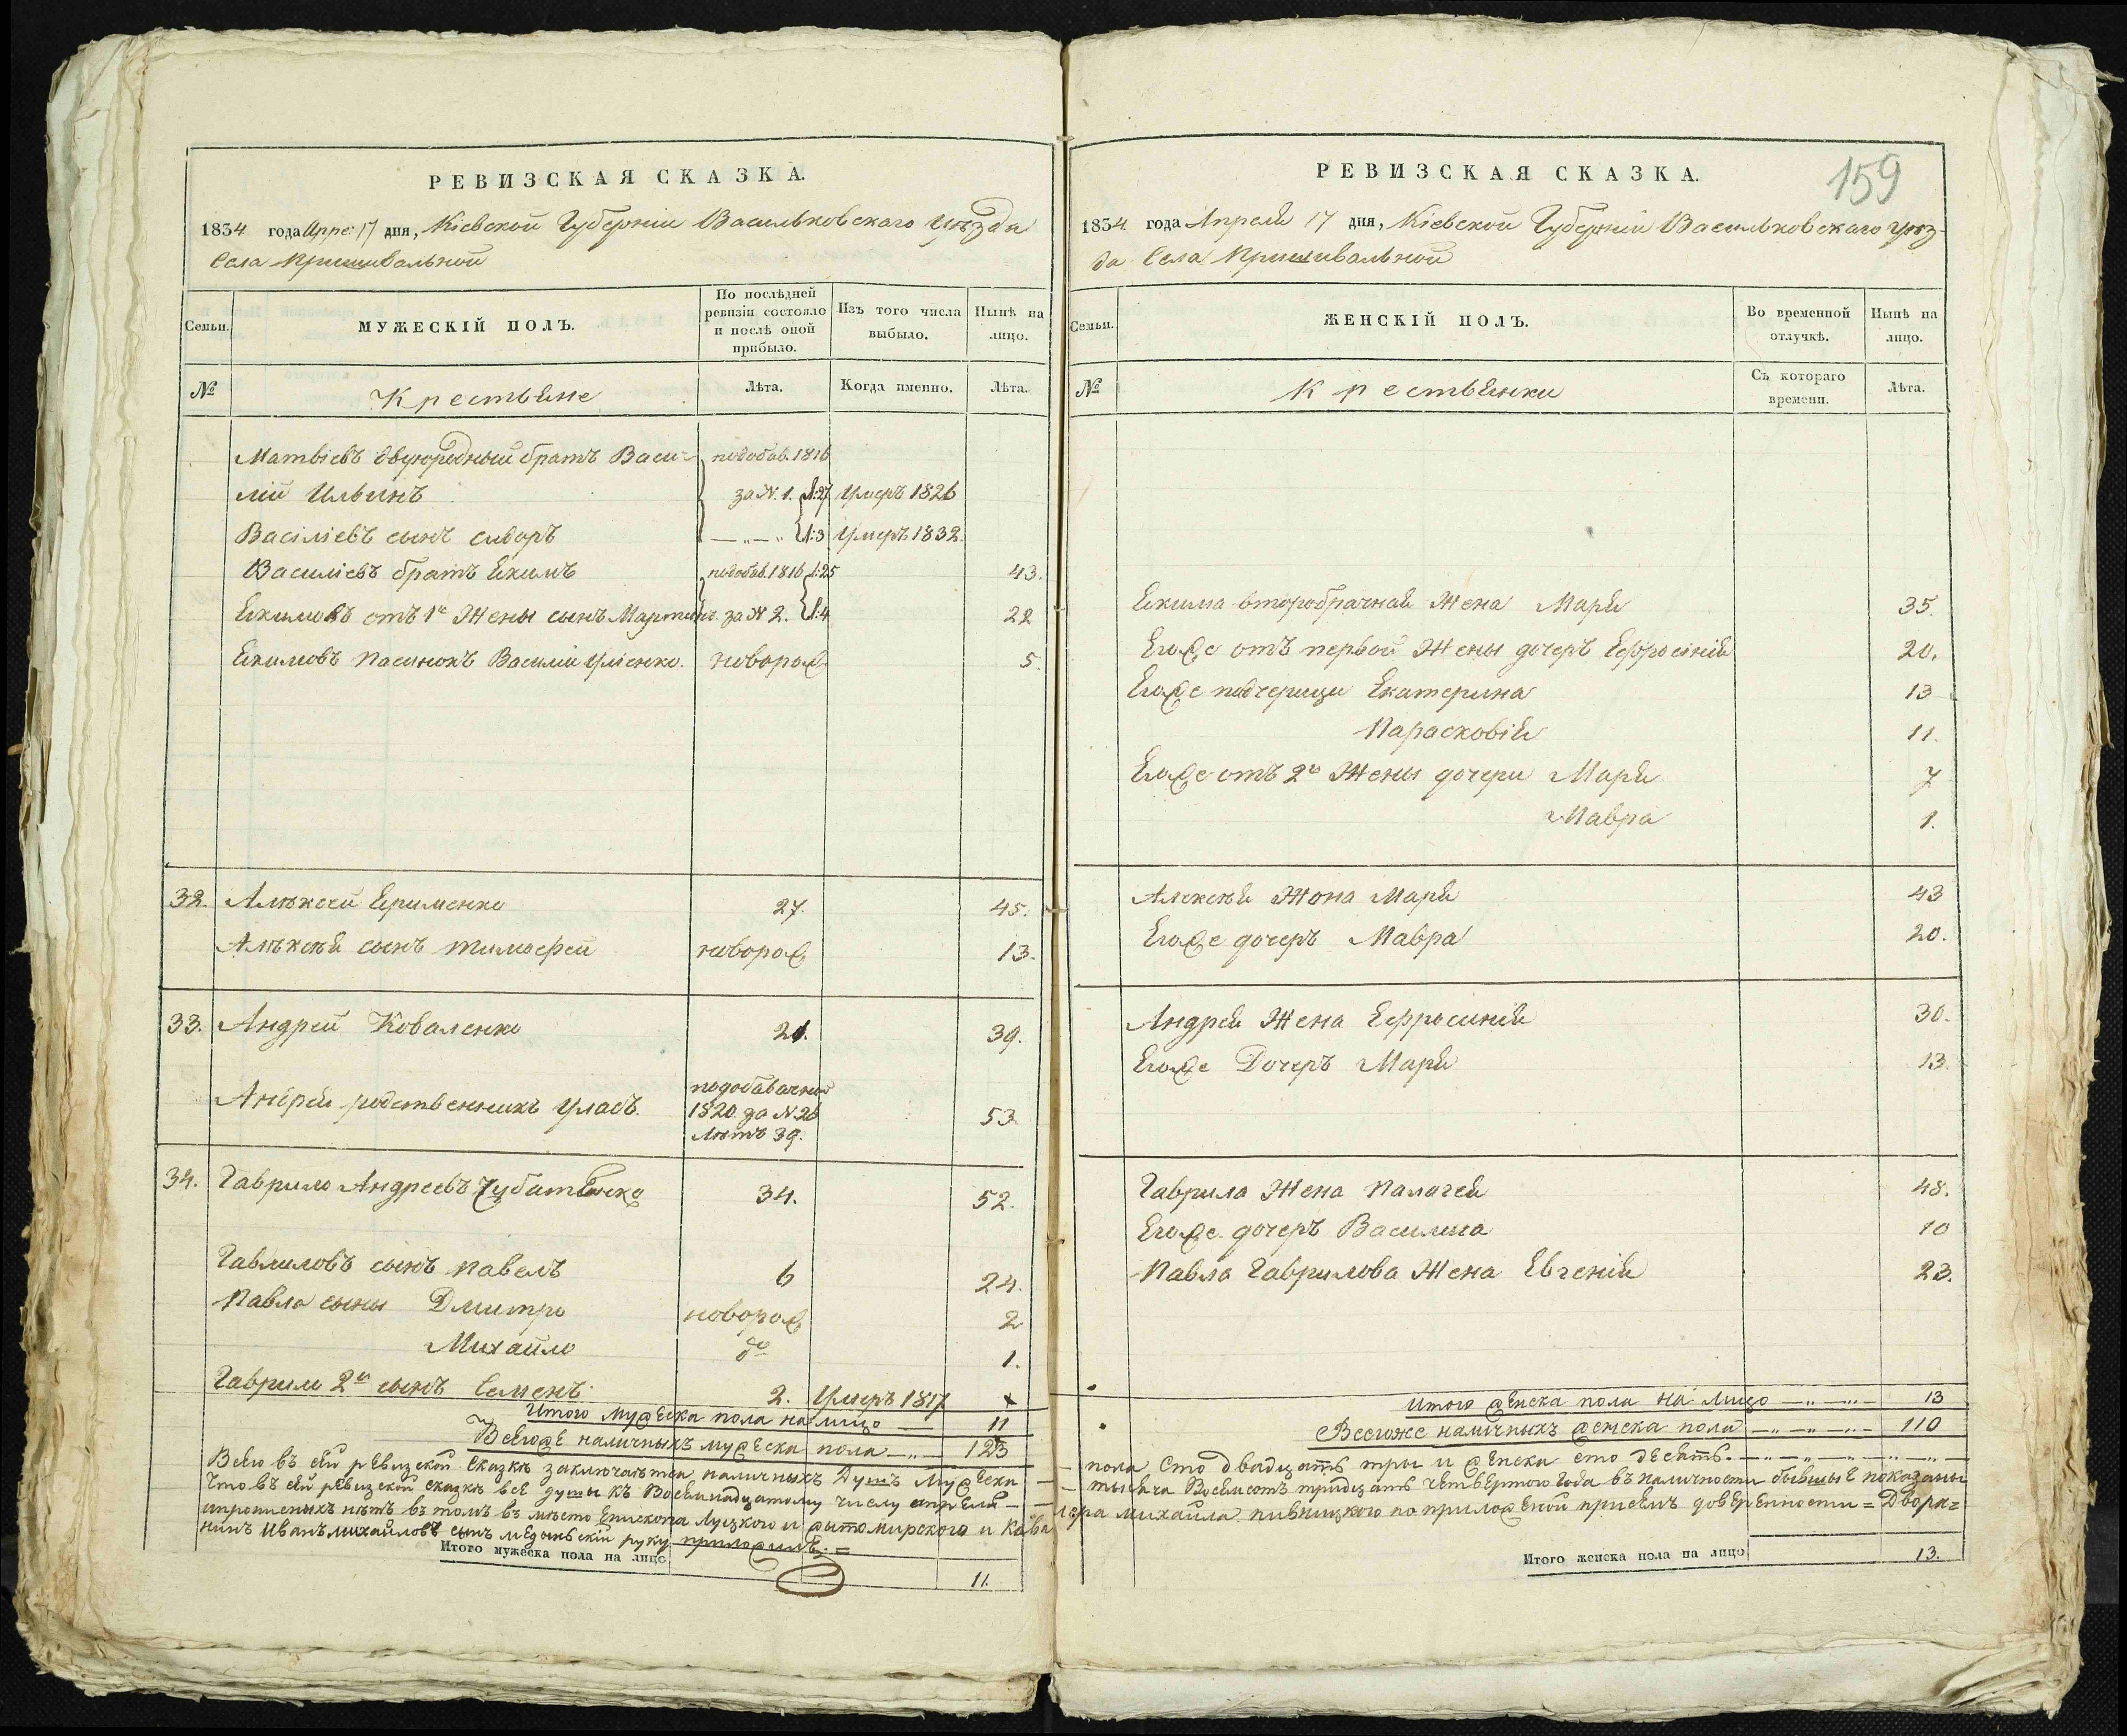 РЕВИЗСКАЯ СКАЗКА.
1834 года Апре: 17 дня, Кіевской Губерніи Васильковскаго Уѣзда
Села Пришивальной
Семьи.
МУЖЕСКІЙ ПОЛЪ.
По послѣдней
ревизіи состояло
и послѣ оной
прибыло.
Изъ того числа
выбыло.
Нынѣ на
лицо.
№
Крестьяне
Лѣта.
Когда именно.
Лѣта.
Матвіевъ двуюродный братъ Васи= подобав. 1816
лій Ильинъ за N. 1. л:27 Умеръ 1826
Васіліевъ сынъ сидоръ —„—„ л:3 Умеръ 1832
Василіевъ братъ Екимъ подобав. 1816 л:25 43.
Екимовъ отъ 1й Жены сынъ Мартинъ за N 2. л:4 22
Екимовъ пасинокъ Василій новорож 5.
32. Алѣксей Ерименко 27. 45.
Алѣксѣя сынъ тимофей новорож 13.
33. Андрей Коваленко 21. 39.
Андрея родственникъ Уласъ подобавочной
1820 за N. 26
Лѣтъ 39. 53.
34. Гаврило Андреевъ 34. 52.
Гавриловъ сынъ Павелъ 6 24.
Павла сыны Дмитро новорож 2
Михайло до 1.
Гаврила 2й сынъ Семенъ 2. Умеръ 1817
Итого мужеска пола на лицо — 11
Всегоже наличныхъ мужеска пола —„— 123
Всего въ сей ревизской сказкѣ заключаѣтся наличныхъ Душъ Мужеска —
Что въ сей ревизской сказкѣ всѣ души къ Восемнадцатому числу апрѣля —
и прописныхъ нѣтъ въ томъ въ мѣсто Епископа Луцкого и житомирского и Кава
нинъ Иванъ михайловъ сынъ руку приложилъ. =
Итого мужеска пола на лицо 11.
РЕВИЗСКАЯ СКАЗКА.
159
1834 года Апреля 17 дня, Кіевской Губерніи Васильковскаго уѣз-
да Села Пришивальной
Семьи.
ЖЕНСКІЙ ПОЛЪ.
Во временной
отлучкѣ.
Нынѣ на
лицо.
№
Крестьянки
Съ котораго
времени.
Лѣта.
Екима второбрачная Жена Марія 35.
Егоже отъ первой Жены дочеръ Ефросінія 20.
Егоже падчерици Екатерина 13
Парасковія 11.
Егоже отъ 2й Жены дочери Марія 7
Мавра 1.
Алексѣя Жона Марія 43
Егоже дочеръ Мавра 20.
Андрея Жена Ефросинія 30.
Егоже Дочеръ Марія 13.
Гаврила Жена Палагея 48.
Егоже дочеръ Василина 10
Павла Гаврилова Жена Евгенія 23.
Итого женска пола на лицо —„—„— 13
Всегоже наличныхъ женска пола —„—„— 110
— пола сто двадцать три и женска сто десять.
— тысяча Восемсотъ тридцать четвертого года въ наличности бывшые показаны
лера михаила пивницкого по приложеной приемъ довѣренности = Дворя=
Итого женска пола на лицо 13.